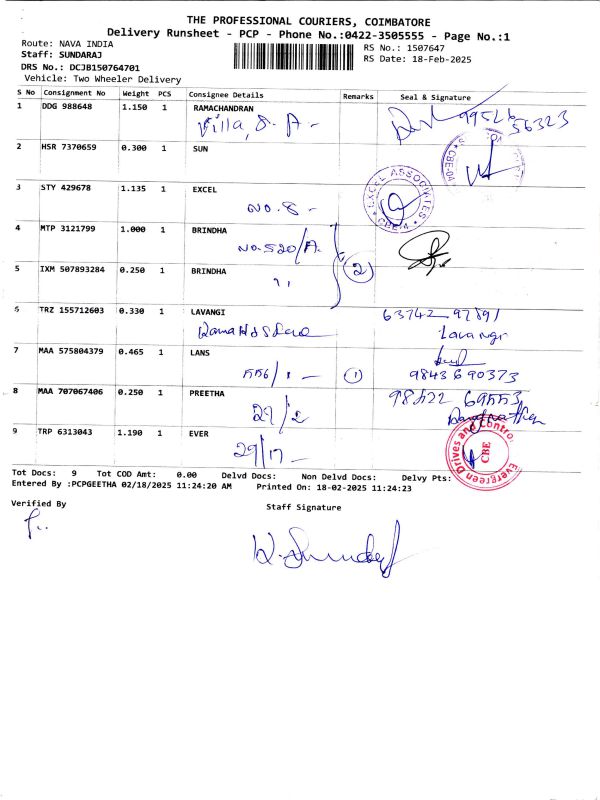 THE PROFESSIONAL COURIERS, COIMBATORE
Delivery Runsheet - PCP - Phone No.:0422-3505555 - Page No.:1
Route: NAVA INDIA
RS No.: 1507647
Staff: SUNDARAJ
RS Date: 18-Feb-2025
DRS No.: DCJB150764701
Vehicle: Two Wheeler Delivery
S No Consignment No Weight PCS Consignee Details Remarks Seal & Signature
1 DDG 988648 1.150 1 RAMACHANDRAN
Villa, 8. A -
56323
2 HSR 7370659 0.300 1 SUN
3 STY 429678 1.135 1 EXCEL
NO. 8 -
EXCEL ASSOCIATES
CBE-4
4 MTP 3121799 1.000 1 BRINDHA
NO.520/A.
5 IXM 507893284 0.250 1 BRINDHA
" 2
6 TRZ 155712603 0.330 1 LAVANGI
Lavangi
7 MAA 575804379 0.465 1 LANS
556/1 - 1
9843690373
8 MAA 707067406 0.250 1 PREETHA
27/2
9 TRP 6313043 1.190 1 EVER
29/17 -
Evergreen Drives and Contro.
CBE
Tot Docs: 9 Tot COD Amt: 0.00 Delvd Docs: Non Delvd Docs: Delvy Pts:
Entered By :PCPGEETHA 02/18/2025 11:24:20 AM Printed On: 18-02-2025 11:24:23
Verified By
Staff Signature